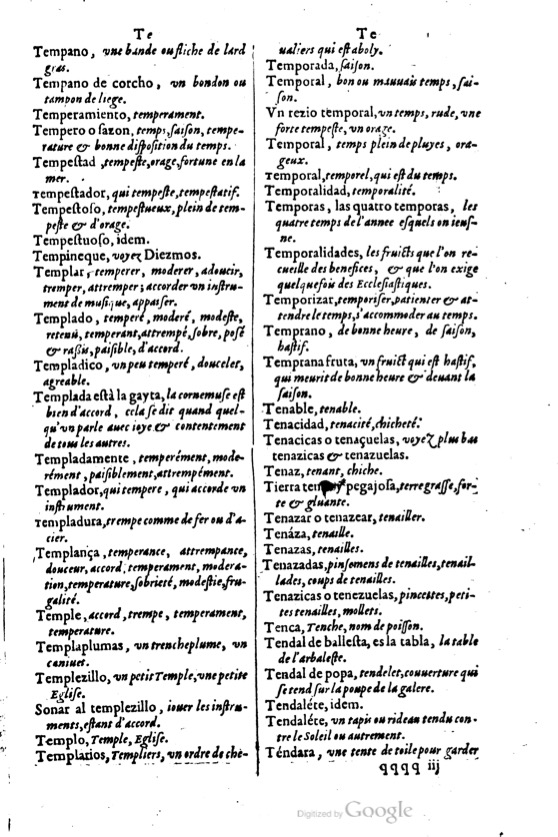 Te
Tempano, vne bande ou fliche de lard
gras.
Tempano de corcho, vn bondon ou
tampon de liege.
Temperamiento, temperament.
Tempero o sazon, temps, saison, tempe-
rature & bonne disposition du temps.
Tempestad, tempeste, orage, fortune en la
mer.
Tempestador, qui tempeste, tempestatif.
Tempestoso, tempestueux, plein de tem-
peste & d'orage.
Tempestuoso, idem.
Tempineque, voyez Diezmos.
Templar, temperer, moderer, adoucir,
tremper, attremper; accorder vn instru-
ment de musique, appaiser.
Templado, temperé, moderé, modeste,
retenu, temperant, attrempé, sobre, posé
& rassis, paisible, d'accord.
Templadico, vn peu temperé, doucelet,
agreable.
Templada està la gayta, la cornemuse est
bien d'accord, cela se dit quand quel-
qu'vn parle auec ioye & contentement
de tous les autres.
Templadamente, temperément, mode-
rément, paisiblement, attrempément.
Templador, qui tempere, qui accorde vn
instrument.
Templadura, trempe comme de fer ou d'a-
cier.
Templança, temperance, attrempance,
douceur, accord, temperament, modera-
tion, temperature, sobrieté, modestie, fru-
galité.
Temple, accord, trempe, temperament,
temperature.
Templaplumas, vn trencheplume, vn
caniuet.
Templezillo, vn petit Temple, vne petite
Eglise.
Sonar al templezillo, iouer les instru-
ments, estant d'accord.
Templo, Temple, Eglise.
Templarios, Templiers, vn ordre de che-
Te
ualiers qui est aboly.
Temporada, saison.
Temporal, bon ou mauuais temps, sai-
son.
Vn rezio temporal, vn temps, rude, vne
forte tempeste, vn orage.
Temporal, temps plein de pluyes, ora-
geux.
Temporal, temporel, qui est du temps.
Temporalidad, temporalité.
Temporas, las quatro temporas, les
quatre temps de l'annee esquels on ieus-
ne.
Temporalidades, les fruicts que l'on re-
cueille des benefices, & que l'on exige
quelquefois des Ecclesiastiques.
Temporizar, temporiser, patienter & at-
tendre le temps, s'accommoder au temps.
Temprano, de bonne heure, de saison,
hastif.
Temprana fruta, vn fruict qui est hastif,
qui meurit de bonne heure & deuant la
saison.
Tenable, tenable.
Tenacidad, tenacité, chicheté.
Tenacicas o tenaçuelas, voyez plus bas
tenazicas & tenazuelas.
Tenaz, tenant, chiche.
Tierra pegajosa, terre grasse, for-
te & gluante.
Tenazar o tenazear, tenailler.
Tenáza, tenaille.
Tenazas, tenailles.
Tenazadas, pinsemens de tenailles, tenail-
lades, coups de tenailles.
Tenazicas o tenezuelas, pincettes, peti-
tes tenailles, mollets.
Tenca, Tenche, nom de poisson.
Tendal de ballesta, es la tabla, la table
de l'arbaleste.
Tendal de popa, tendelet, couuerture qui
se tend sur la poupe de la galere.
Tendaléte, idem.
Tendaléte, vn tapis ou rideau tendu con-
tre le Soleil ou autrement.
Téndara, vne tente de toile pour garder
qqqq iij
Digitized by Google